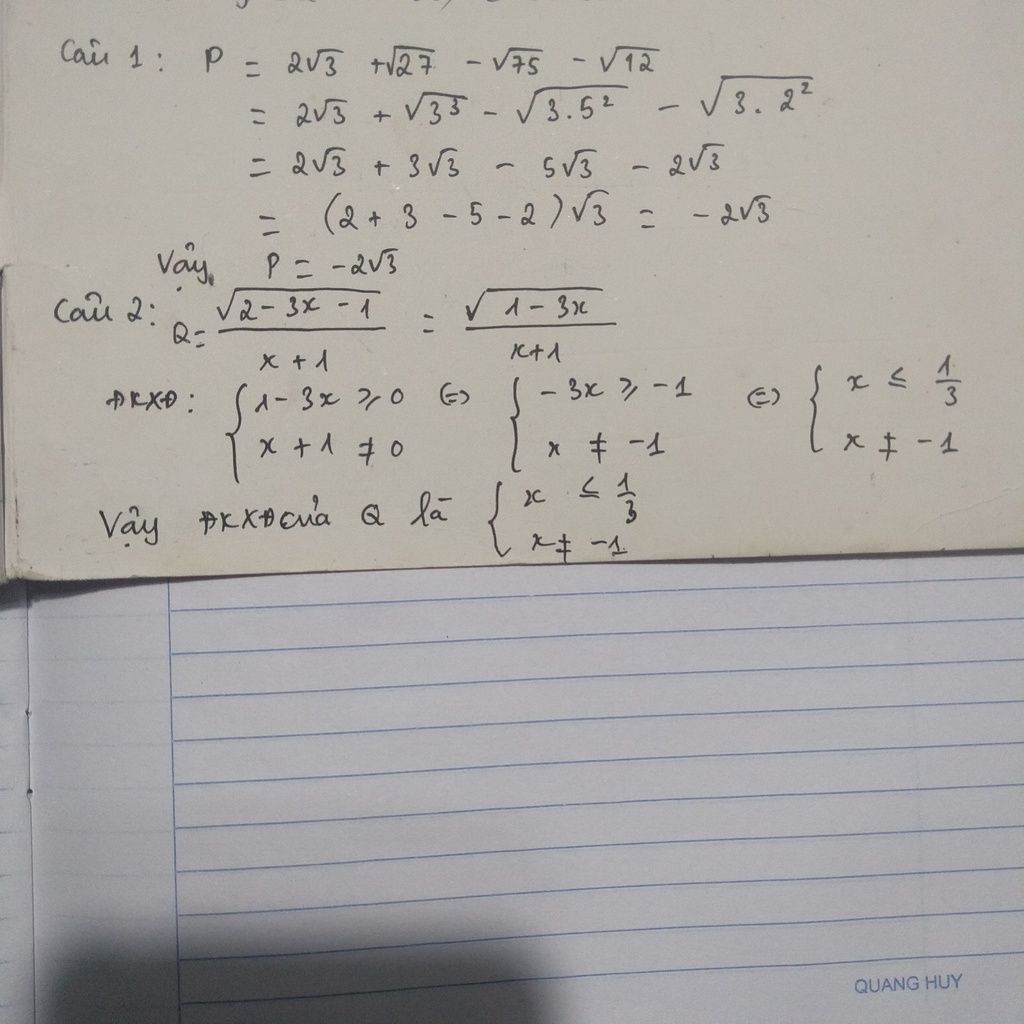 Câu 1: P = 2√3 + √27 - √75 - √12
= 2√3 + √3³ - √3.5² - √3.2²
= 2√3 + 3√3 - 5√3 - 2√3
= (2 + 3 - 5 - 2)√3 = -2√3
Vậy P = -2√3
Câu 2: Q = √(2 - 3x - 1) / (x + 1) = √(1 - 3x) / (x + 1)
ĐKXĐ: { 1 - 3x ≥ 0 ; x + 1 ≠ 0 ⇔ { -3x ≥ -1 ; x ≠ -1 ⇔ { x ≤ 1/3 ; x ≠ -1
Vậy ĐKXĐ của Q là { x ≤ 1/3 ; x ≠ -1
QUANG HUY